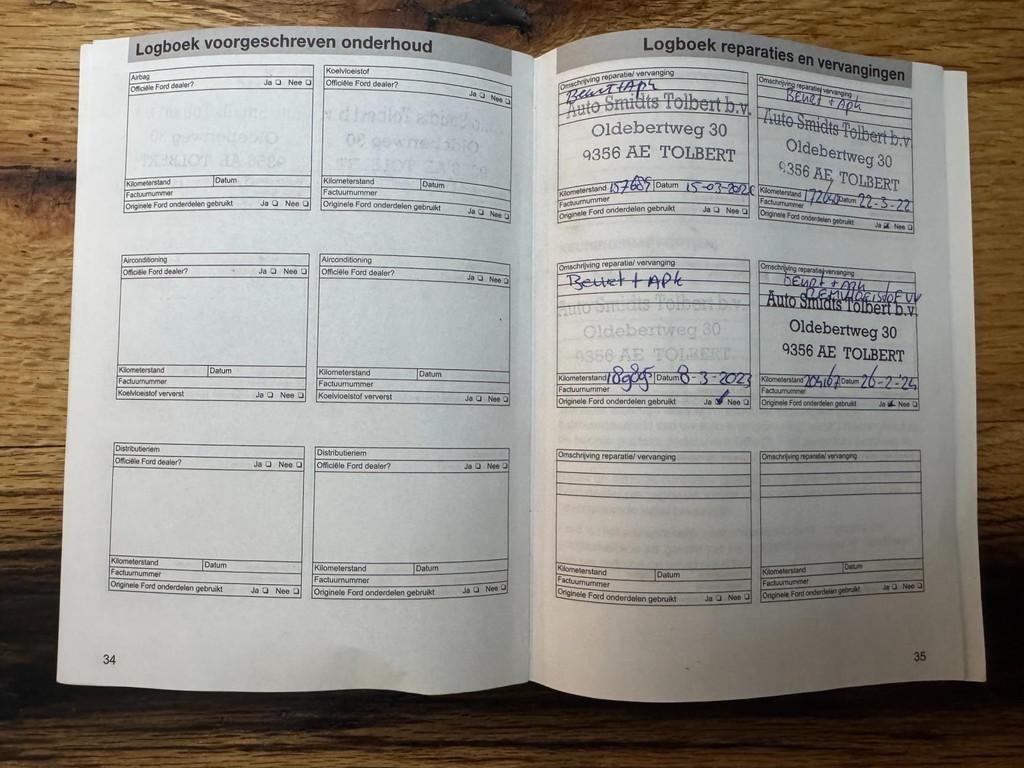 Logboek voorgeschreven onderhoud
Airbag
Officiële Ford dealer? Ja Nee
Kilometerstand Datum
Factuurnummer
Originele Ford onderdelen gebruikt Ja Nee
Koelvloeistof
Officiële Ford dealer? Ja Nee
Kilometerstand Datum
Factuurnummer
Originele Ford onderdelen gebruikt Ja Nee
Airconditioning
Officiële Ford dealer? Ja Nee
Kilometerstand Datum
Factuurnummer
Koelvloeistof ververst Ja Nee
Airconditioning
Officiële Ford dealer? Ja Nee
Kilometerstand Datum
Factuurnummer
Koelvloeistof ververst Ja Nee
Distributieriem
Officiële Ford dealer? Ja Nee
Kilometerstand Datum
Factuurnummer
Originele Ford onderdelen gebruikt Ja Nee
Distributieriem
Officiële Ford dealer? Ja Nee
Kilometerstand Datum
Factuurnummer
Originele Ford onderdelen gebruikt Ja Nee
34
Logboek reparaties en vervangingen
Omschrijving reparatie/ vervanging
Beurt + Apk
Auto Smidts Tolbert b.v.
Oldebertweg 30
9356 AE TOLBERT
Kilometerstand Datum
Factuurnummer
Originele Ford onderdelen gebruikt Ja Nee
Omschrijving reparatie/ vervanging
Beurt + Apk
Auto Smidts Tolbert b.v.
Oldebertweg 30
9356 AE TOLBERT
Kilometerstand Datum 22-3-22
Factuurnummer
Originele Ford onderdelen gebruikt Ja Nee
Omschrijving reparatie/ vervanging
Beurt + Apk
Auto Smidts Tolbert b.v.
Oldebertweg 30
9356 AE TOLBERT
Kilometerstand Datum 8-3-2023
Factuurnummer
Originele Ford onderdelen gebruikt Ja Nee
Omschrijving reparatie/ vervanging
beurt + Apk
Auto Smidts Tolbert b.v.
Oldebertweg 30
9356 AE TOLBERT
Kilometerstand 204167 Datum
Factuurnummer
Originele Ford onderdelen gebruikt Ja Nee
Omschrijving reparatie/ vervanging
Kilometerstand Datum
Factuurnummer
Originele Ford onderdelen gebruikt Ja Nee
Omschrijving reparatie/ vervanging
Kilometerstand Datum
Factuurnummer
Originele Ford onderdelen gebruikt Ja Nee
35